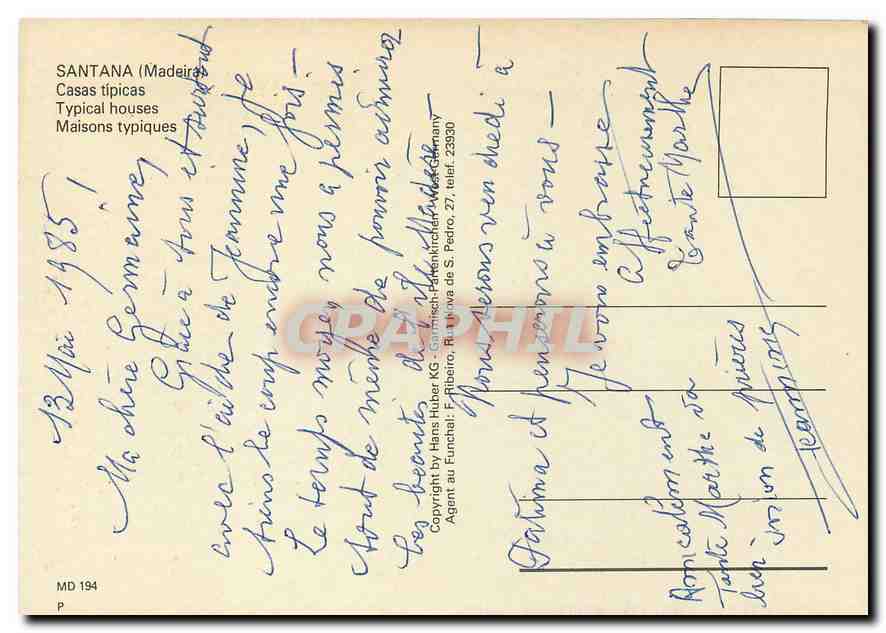 SANTANA (Madeira)
Casas típicas
Typical houses
Maisons typiques
12 Mai 1985 !
Ma chère Germaine,
Grâce à tous et surtout
avec l'aide de Jeannine, je
tiens le coup encore une fois —
Le temps moyen nous a permis
tout de même de pouvoir admirer
les beautés de Madère —
Nous serons vendredi à
Fatima et penserons à vous —
Je vous embrasse
affectueusement
Tante Marthe
Amicalement
Tante Marthe va
bien de prières
Jeannine
Copyright by Hans Huber KG - Garmisch-Partenkirchen - West-Germany
Agent au Funchal: F. Ribeiro, Rua Nova de S. Pedro, 27, telef. 23930
CPAPHIL
MD 194
P